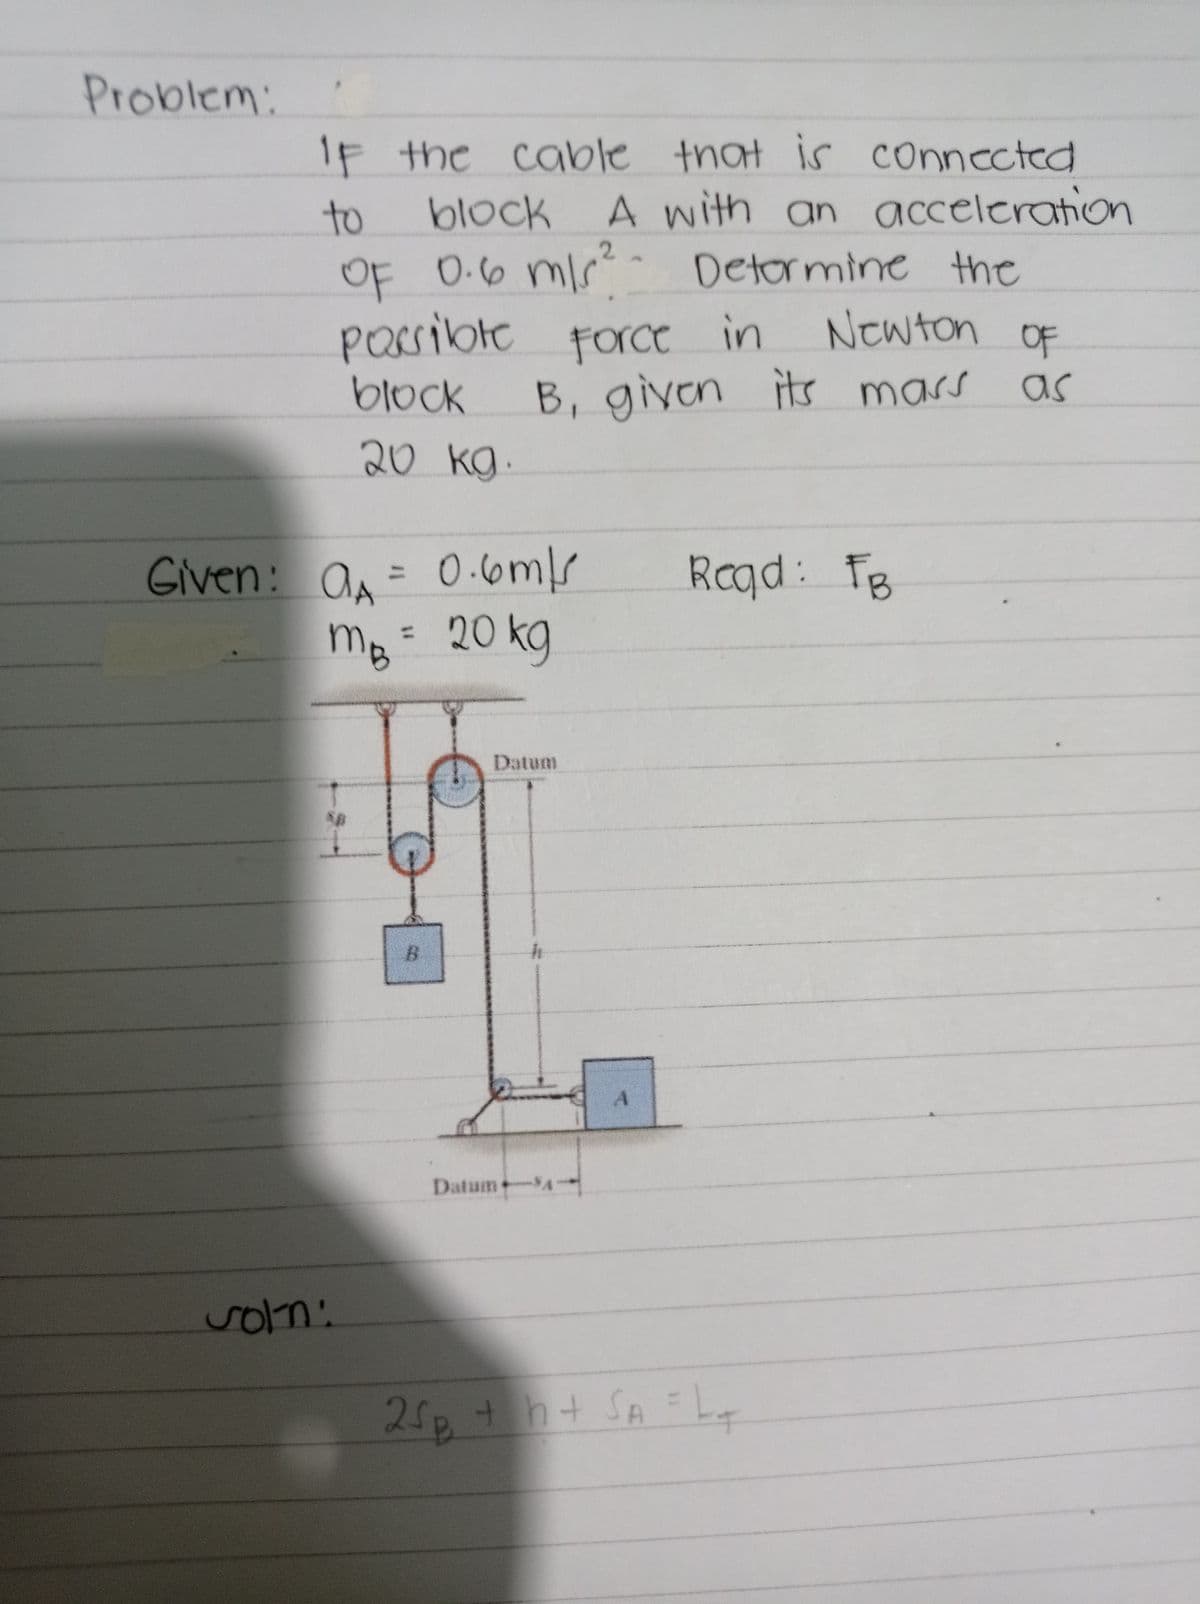 Problem:
IF the cable that is connected
to block A with an acceleration
OF 0.6 m/s². Determine the
possible Force in Newton OF
block B, given its mass as
20 kg.
Given: a_A = 0.6m/s Reqd: F_B
m_B = 20 kg
Datum
s_B
B
h
A
Datum s_A
soln:
2S_B + h + S_A = L_T